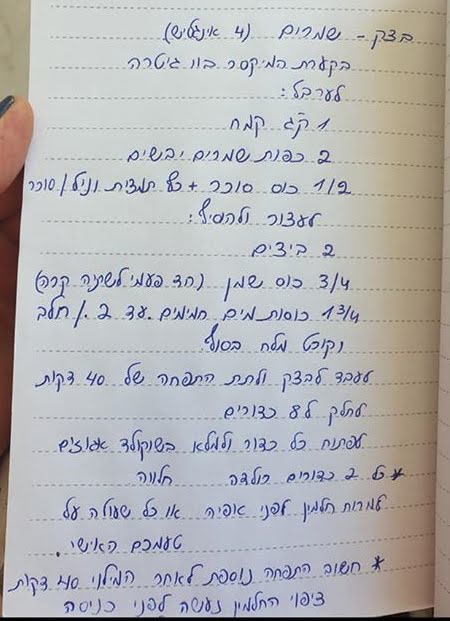 בצק - שמרים (4 אינגליש)
בקערת המיקסר בוו גיטרה
לערבל:
1 ק"ג קמח
2 כפות שמרים יבשים
1/2 כוס סוכר + כף תמצית וניל / סוכר
לעצור ולהוסיף:
2 ביצים
3/4 כוס שמן (חד פעמי לשתיה קרה)
1 3/4 כוסות מים חמימים עד 2 / חלב
וקורט מלח בסוף
לעבד לבצק ולתת התפחה של 40 דקות
לחלק ל 8 כדורים
לפתוח כל כדור ולמלא בשוקולד אגוזים
* כל 2 כדורים רולדה חלווה
למרוח חלמון לפני אפיה או כל שעולה על
טעמכם האישי.
* חשוב התפחה נוספת לאחר המילוי 40 דקות
ציפוי החלמון נעשה לפני כניסה